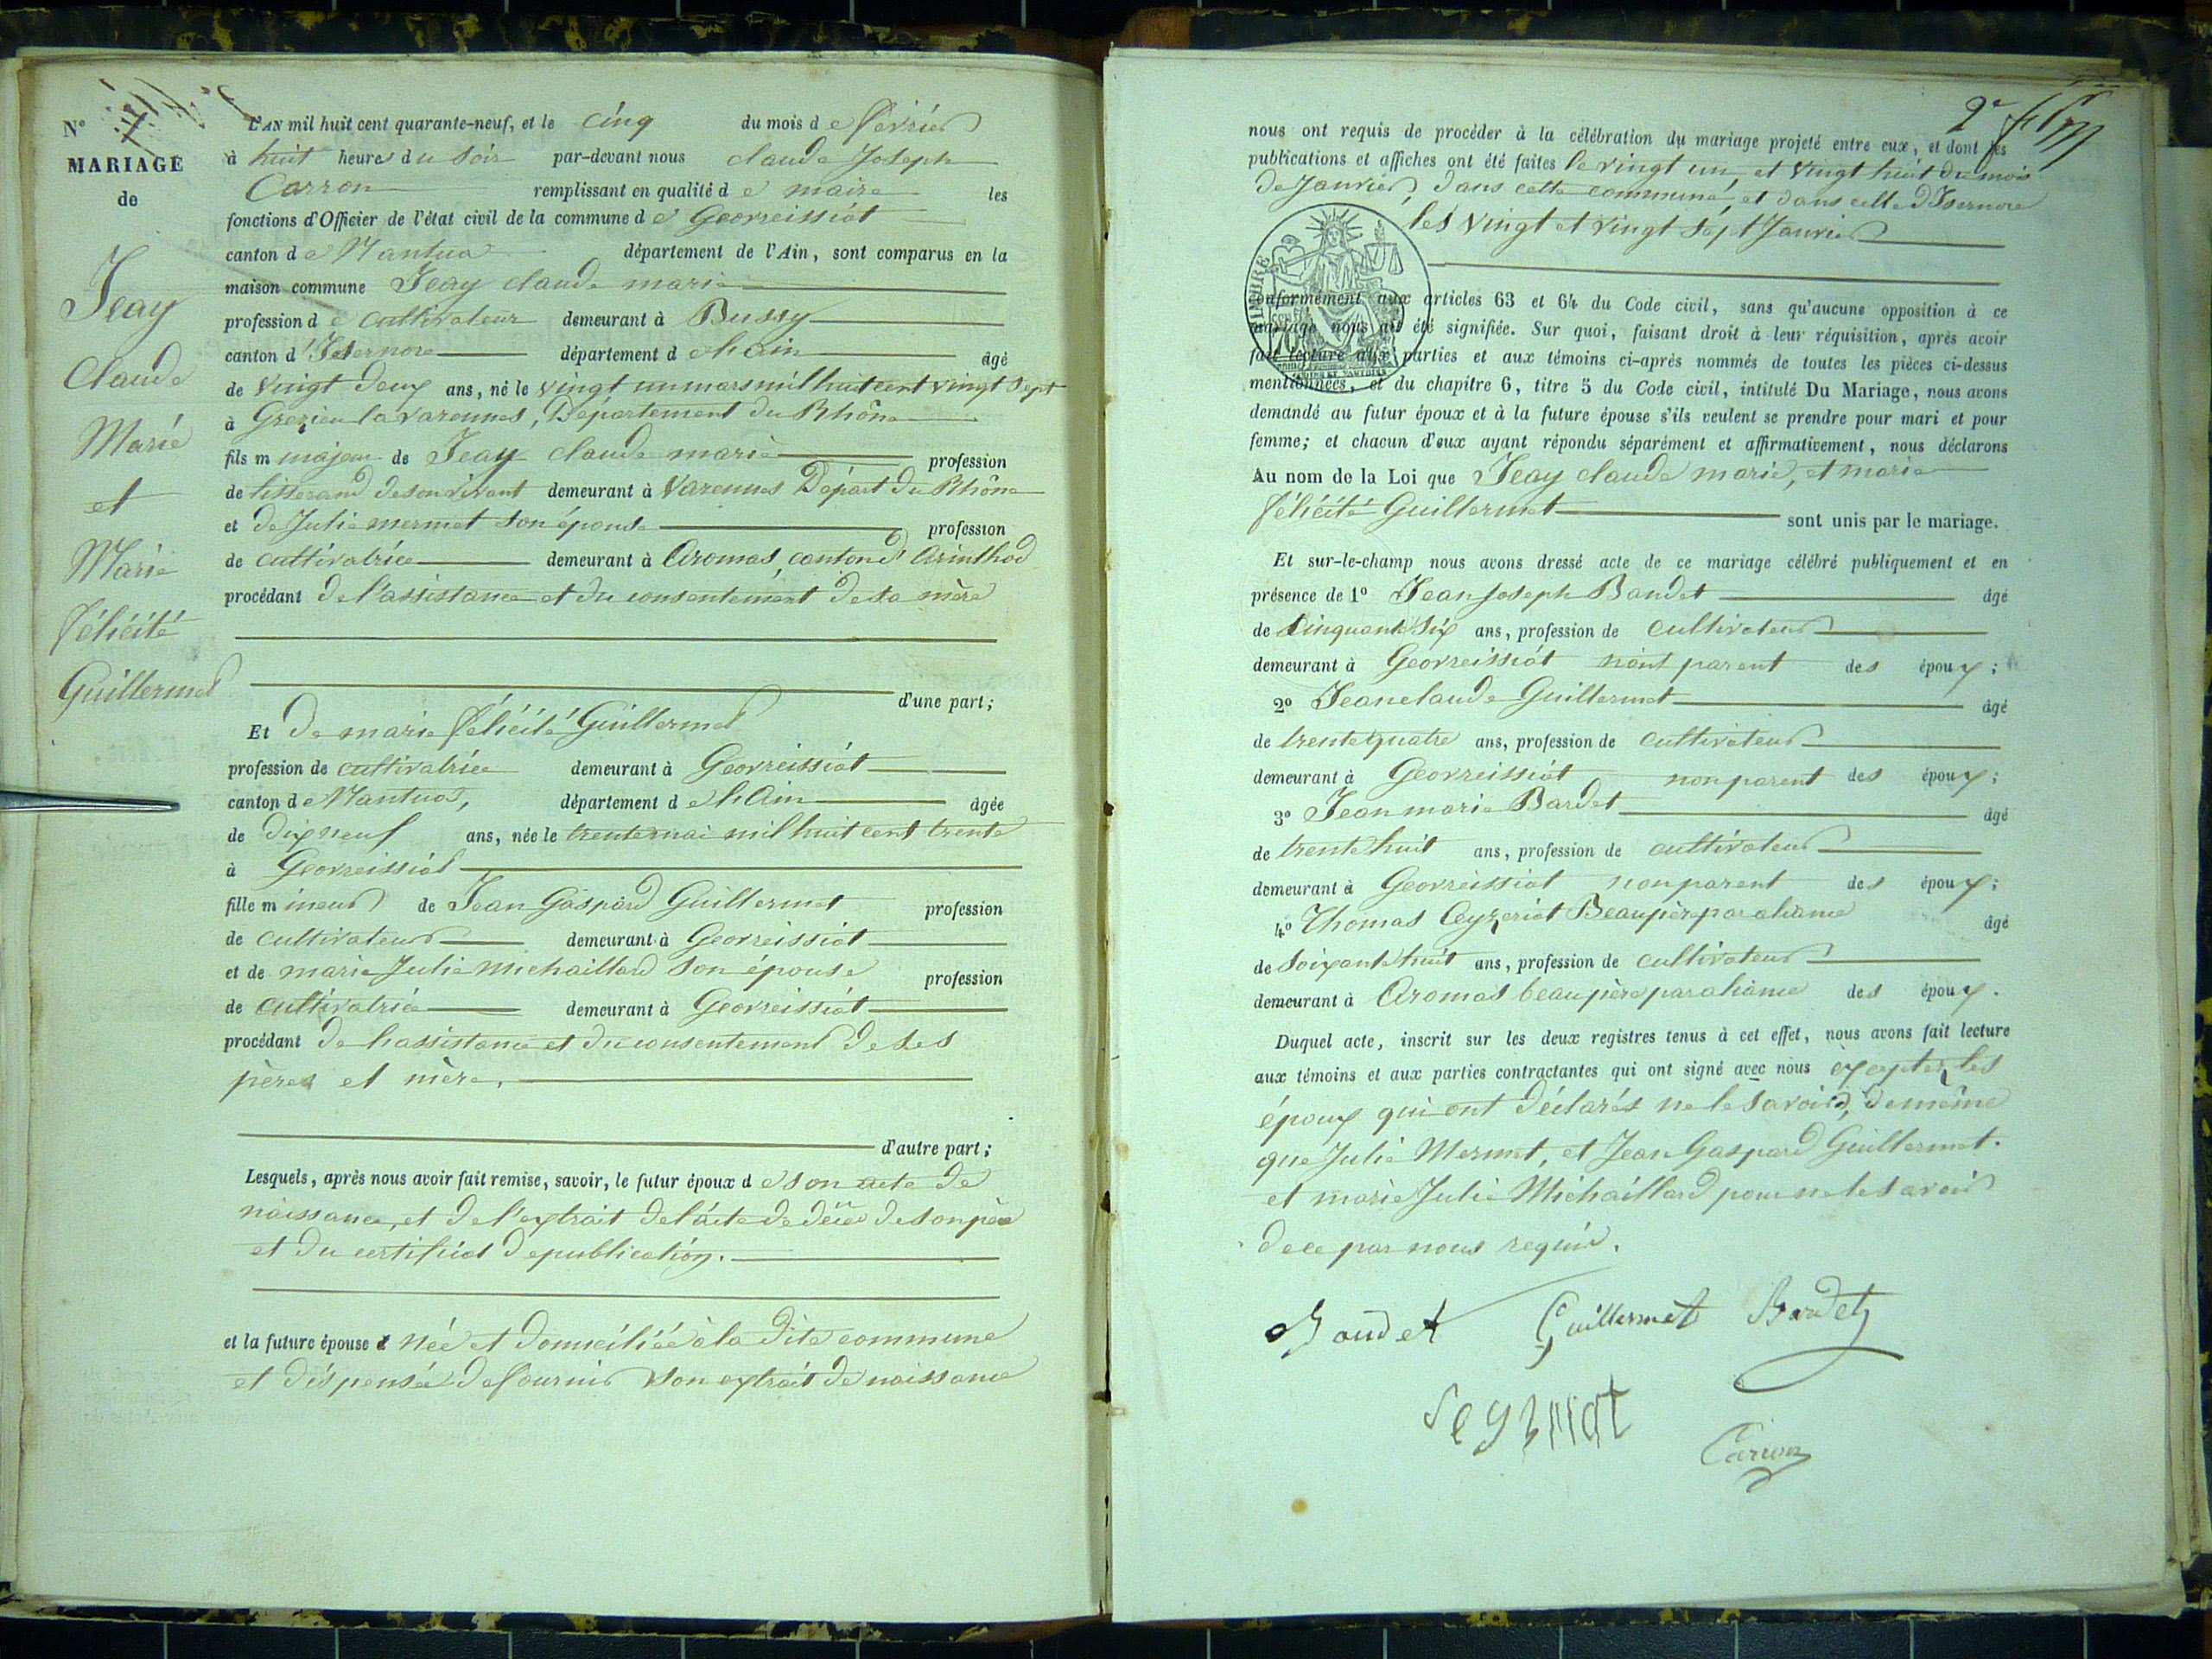 N°
MARIAGE
de
Jeay
Claude
Marie
et
Marie
félicité
Guillermet
L'AN mil huit cent quarante-neuf, et le cinq du mois de février
à huit heures du soir par-devant nous claude Joseph
Carron remplissant en qualité de maire les
fonctions d'Officier de l'état civil de la commune de Georreissiat
canton de Nantua département de l'Ain, sont comparus en la
maison commune Jeay claude marie
profession de cultivateur demeurant à Bussy
canton d'Isernore département de l'ain âgé
de vingt deux ans, né le vingt un mars mil huit cent vingt sept
à Grezieu la varennes, Département du Rhône
fils majeur de Jeay claude marie profession
de tisserand de son vivant demeurant à Varennes Départ du Rhône
et de Julie mermet son épouse profession
de cultivatrice demeurant à Aromas, canton d'Arinthod
procédant de l'assistance et du consentement de sa mère
d'une part;
Et de marie félicité Guillermet
profession de cultivatrice demeurant à Georreissiat
canton de Nantua, département de l'Ain âgée
de dix neuf ans, née le trente mai mil huit cent trente
à Georreissiat
fille mineur de Jean Gaspard Guillermet profession
de cultivateur demeurant à Georreissiat
et de marie Julie Michaillard son épouse profession
de cultivatrice demeurant à Georreissiat
procédant de l'assistance et du consentement de ses
pères et mère.
d'autre part;
Lesquels, après nous avoir fait remise, savoir, le futur époux de son acte de
naissance, et de l'extrait de l'acte de décès de son père
et du certificat de publication.
et la future épouse née et domiciliée à la dite commune
et dispensée de fournir son extrait de naissance
2e
nous ont requis de procéder à la célébration du mariage projeté entre eux, et dont les
publications et affiches ont été faites le vingt un et vingt huit du mois
de Janvier, dans cette commune, et dans celle d'Isernore
les vingt et vingt sept Janvier
TIMBRE
70
conformément aux articles 63 et 64 du Code civil, sans qu'aucune opposition à ce
mariage nous ait été signifiée. Sur quoi, faisant droit à leur réquisition, après avoir
fait lecture aux parties et aux témoins ci-après nommés de toutes les pièces ci-dessus
mentionnées, et du chapitre 6, titre 5 du Code civil, intitulé Du Mariage, nous avons
demandé au futur époux et à la future épouse s'ils veulent se prendre pour mari et pour
femme; et chacun d'eux ayant répondu séparément et affirmativement, nous déclarons
Au nom de la Loi que Jeay claude marie, et marie
félicité Guillermet sont unis par le mariage.
Et sur-le-champ nous avons dressé acte de ce mariage célébré publiquement et en
présence de 1° Jean Joseph Baudet âgé
de Cinquante six ans, profession de cultivateur
demeurant à Georreissiat non parent des époux;
2° Jean claude Guillermet âgé
de trente quatre ans, profession de cultivateur
demeurant à Georreissiat non parent des époux;
3° Jean marie Bardet âgé
de trente huit ans, profession de cultivateur
demeurant à Georreissiat non parent des époux;
4° Thomas Ceyzeriat Beaupère par aliance âgé
de Soixante huit ans, profession de cultivateur
demeurant à Aromas beaupère par aliance des époux.
Duquel acte, inscrit sur les deux registres tenus à cet effet, nous avons fait lecture
aux témoins et aux parties contractantes qui ont signé avec nous exceptez les
époux qui ont déclarés ne le savoir, de même
que Julie Mermet, et Jean Gaspard Guillermet.
et marie Julie Michaillard pour ne le savoir
de ce par nous requis.
Baudet Guillermet Bardet
Seyzériat
Carron